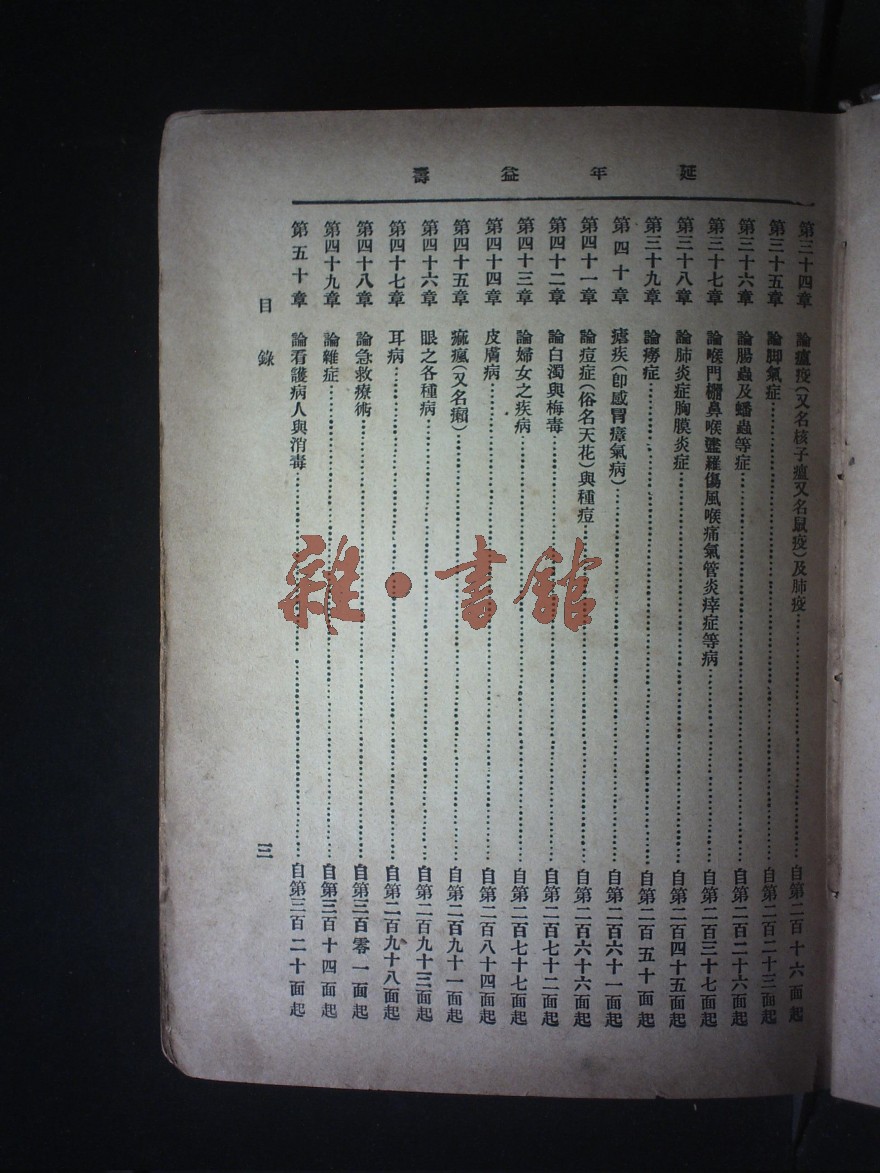 延年益壽
第三十四章　論瘟疫(又名核子瘟又名鼠疫)及肺疫……自第二百十六面起
第三十五章　論脚氣症……自第二百二十三面起
第三十六章　論腸蟲及蟠蟲等症……自第二百二十六面起
第三十七章　論喉門櫃鼻喉鑒羅傷風喉痛氣管炎㾕症等病……自第二百三十七面起
第三十八章　論肺炎症胸膜炎症……自第二百四十五面起
第三十九章　論癆症……自第二百五十面起
第四十章　瘧疾(卽感冒瘴氣病)……自第二百六十一面起
第四十一章　論痘症(俗名天花)與種痘……自第二百六十六面起
第四十二章　論白濁與梅毒……自第二百七十二面起
第四十三章　論婦女之疾病……自第二百七十七面起
第四十四章　皮膚病……自第二百八十四面起
第四十五章　痲瘋(又名癩)……自第二百九十一面起
第四十六章　眼之各種病……自第二百九十三面起
第四十七章　耳病……自第二百九十八面起
第四十八章　論急救療術……自第三百零一面起
第四十九章　論雜症……自第三百十四面起
第五十章　論看護病人與消毒……自第三百二十面起
目錄　三
雜·書館